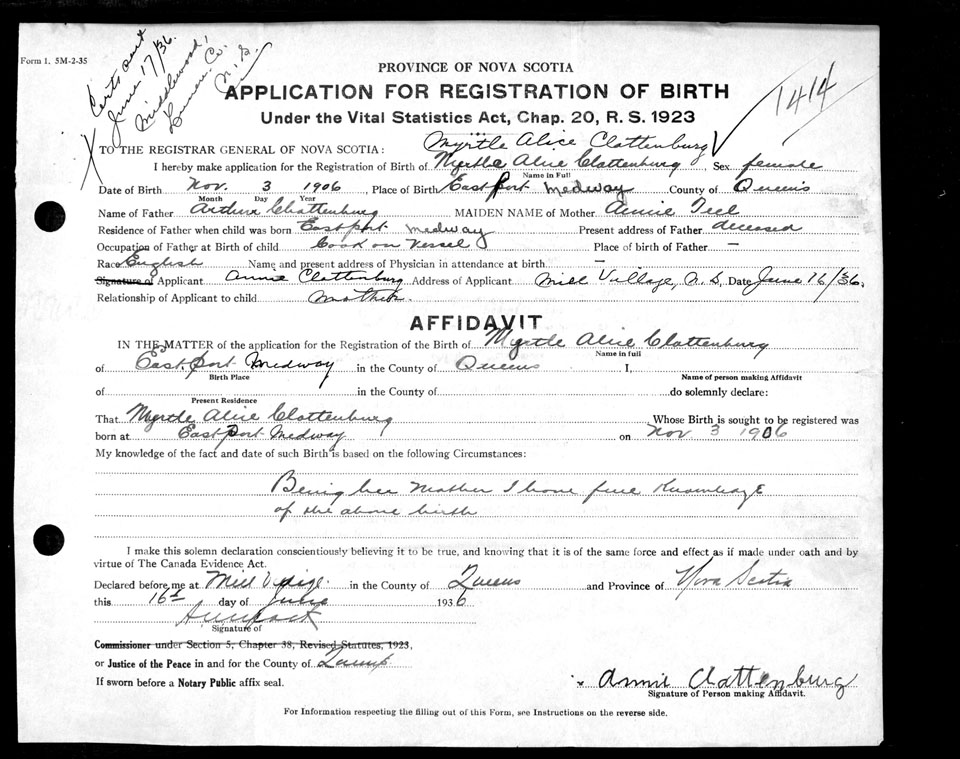 Form 1. 5M-2-35
Certs sent
June 17/36.
Middlewood,
Lunen. Co.
N. S.
X
1414
PROVINCE OF NOVA SCOTIA
APPLICATION FOR REGISTRATION OF BIRTH
Under the Vital Statistics Act, Chap. 20, R. S. 1923
Myrtle Alice Clattenburg
TO THE REGISTRAR GENERAL OF NOVA SCOTIA:
I hereby make application for the Registration of Birth of Myrtle Alice Clattenburg, Sex female
Name in Full
Date of Birth Nov. 3 1906, Place of Birth East Port Medway County of Queens
Month Day Year
Name of Father Arthur Clattenburg MAIDEN NAME of Mother Annie Teel
Residence of Father when child was born East port Medway Present address of Father deceased
Occupation of Father at Birth of child Cook on Vessel Place of birth of Father —
Race English Name and present address of Physician in attendance at birth —
Signature of Applicant Annie Clattenburg Address of Applicant Mill Village, N. S. Date June 16/36.
Relationship of Applicant to child Mother.
AFFIDAVIT
IN THE MATTER of the application for the Registration of the Birth of Myrtle Alice Clattenburg
Name in full
of East port Medway in the County of Queens I,
Birth Place Name of person making Affidavit
of in the County of do solemnly declare:
Present Residence
That Myrtle Alice Clattenburg Whose Birth is sought to be registered was
born at East Port Medway on Nov 3 1906
My knowledge of the fact and date of such Birth is based on the following Circumstances:
Being her Mother I have full Knowledge
of the above birth
I make this solemn declaration conscientiously believing it to be true, and knowing that it is of the same force and effect as if made under oath and by
virtue of The Canada Evidence Act.
Declared before me at Mill Village in the County of Queens and Province of Nova Scotia
this 16th day of June 1936
Signature of
Commissioner under Section 5, Chapter 38, Revised Statutes, 1923,
or Justice of the Peace in and for the County of Queens
If sworn before a Notary Public affix seal.
Annie Clattenburg
Signature of Person making Affidavit.
For Information respecting the filling out of this Form, see Instructions on the reverse side.